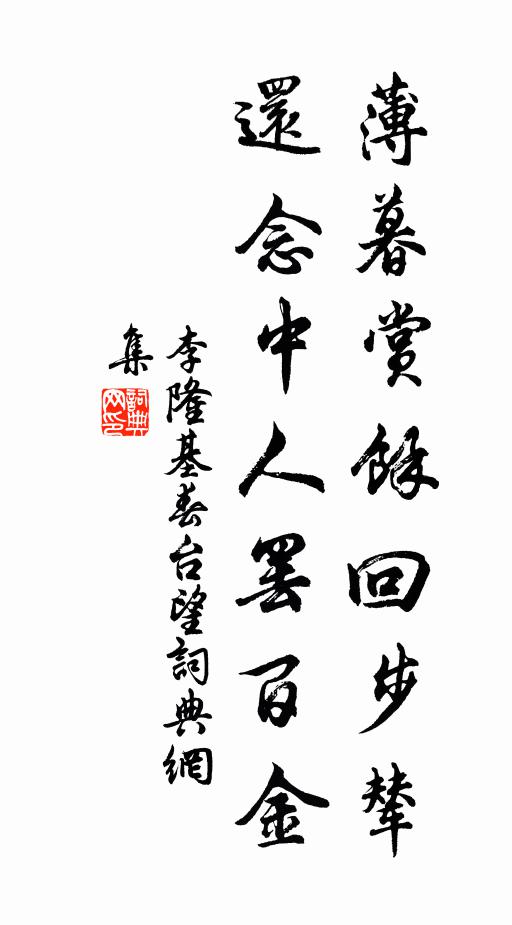 薄暮賞餘回步輦
還念中人罷百金
李隆基春台望詞典網
集
詞典网印